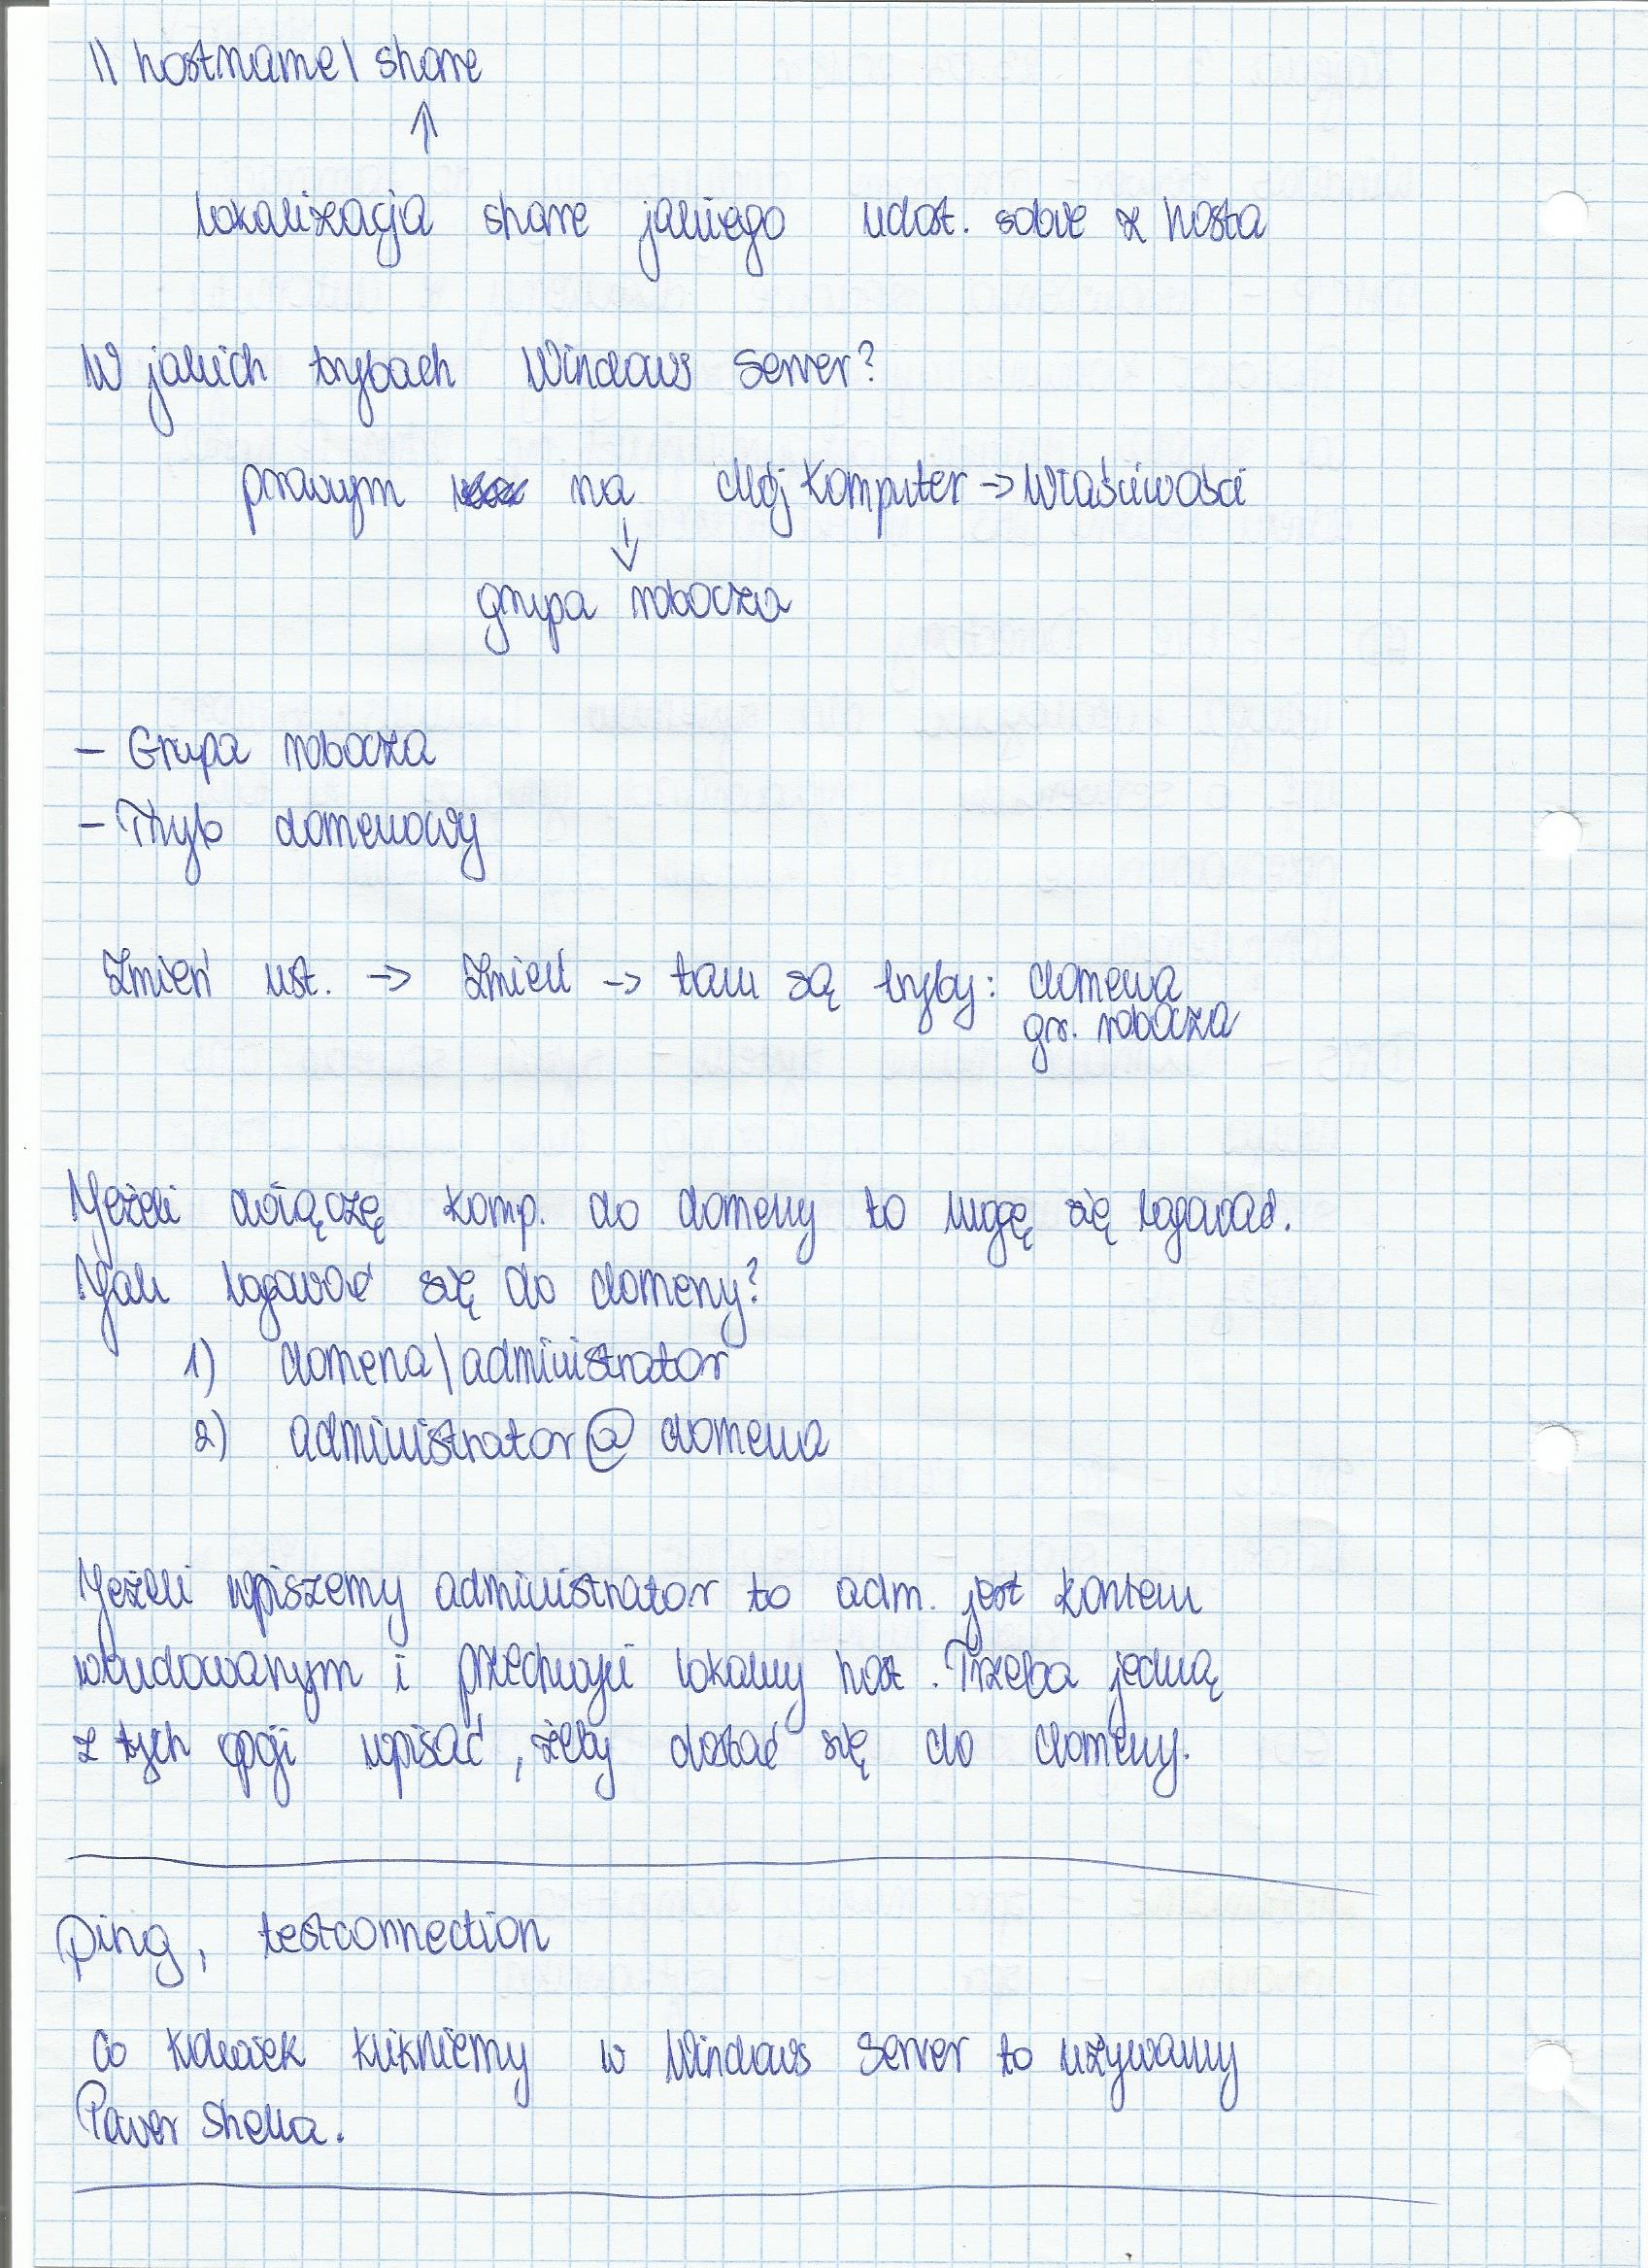 \\ hostname\ share
↑
lokalizacja share jakiego udost. sobie z hosta
W jakich trybach Windows Server?
prawym na Mój Komputer -> Właściwości
↓
grupa robocza
- Grupa robocza
- Tryb domenowy
Zmień ust. -> Zmień -> tam są tryby: domena
gr. robocza
Jeżeli dołączę komp. do domeny to mogę się logować.
Jak logować się do domeny?
1) domena\administrator
2) administrator@domena
Jeżeli wpiszemy administrator to adm. jest kontem
wbudowanym i lokalny host. Trzeba jedną
z tych opcji wpisać, żeby dostać się do domeny.
Ping, testconnection
Co kolwiek klikniemy w Windows Server to używamy
Power Shella.